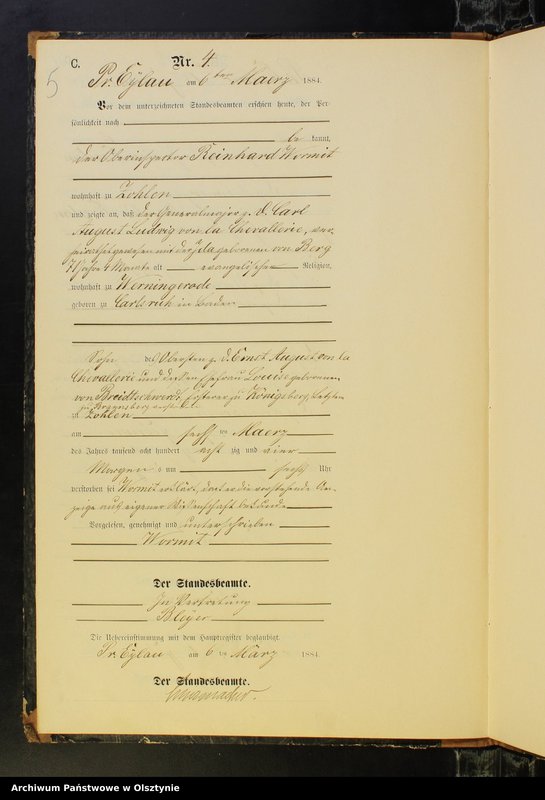 C. Nr. 4.
5
Pr. Eylau am 6ten Maerz 1884.
Vor dem unterzeichneten Standesbeamten erschien heute, der Per-
sönlichkeit nach
be kannt,
der Oberinspector Reinhard Wormit
wohnhaft zu Zohlen
und zeigte an, daß der Generalmajor z. D. Carl
August Ludwig von la Chevallerie, ver-
heirathet gewesen mit der Ida geborenen von Berg
71 Jahre 4 Monate alt evangelischer Religion,
wohnhaft zu Werningerode
geboren zu Carlsruh in Baden
Sohn des Obersten z. D. Ernst August von la
Chevallerie und dessen Ehefrau Louise geborenen
von Breidtschwerdt, Ersterer zu Königsberg, Letztere
zu Braunsberg verstorben
zu Zohlen
am sechs ten Maerz
des Jahres tausend acht hundert acht zig und vier
Morgens um sechs Uhr
verstorben sei. Wormit erklärt, daß er die vorstehende An-
zeige aus eigener Wissenschaft bekunde
Vorgelesen, genehmigt und unterschrieben
Wormit
Der Standesbeamte.
In Vertretung
Bleyer
Die Uebereinstimmung mit dem Hauptregister beglaubigt.
Pr. Eylau am 6 ten März 1884.
Der Standesbeamte.
Archiwum Państwowe w Olsztynie